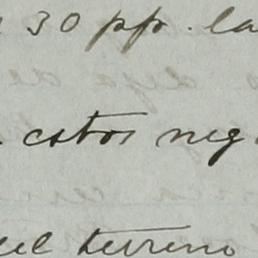 30 pp. la
estos neg
del terreno